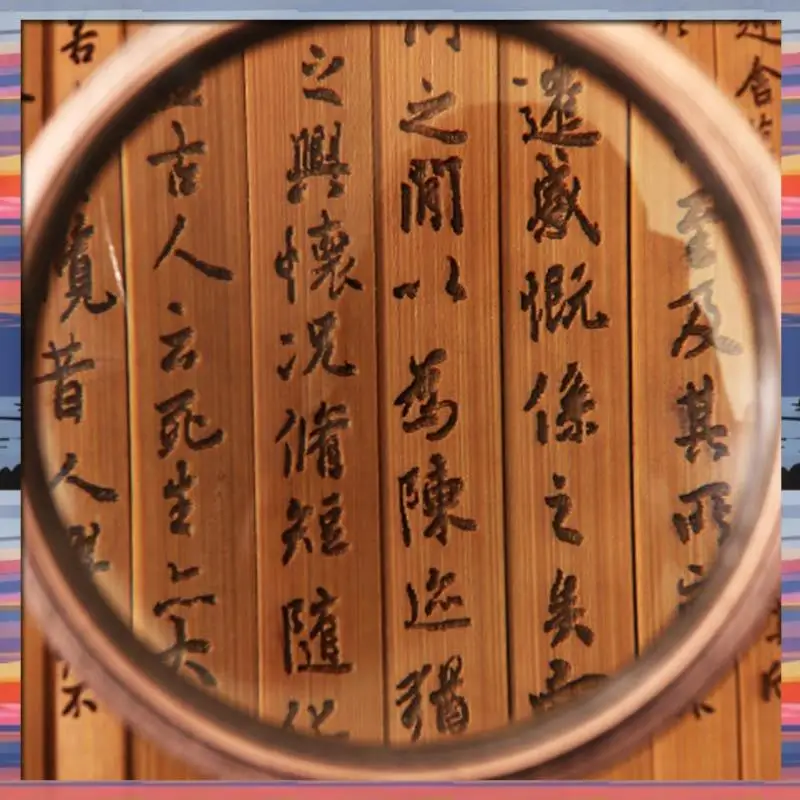 舍
至及其所
遷感慨係之矣
之閒以為陳迹猶
之興懷況脩短隨化
古人云死生亦大
覽昔人興
不